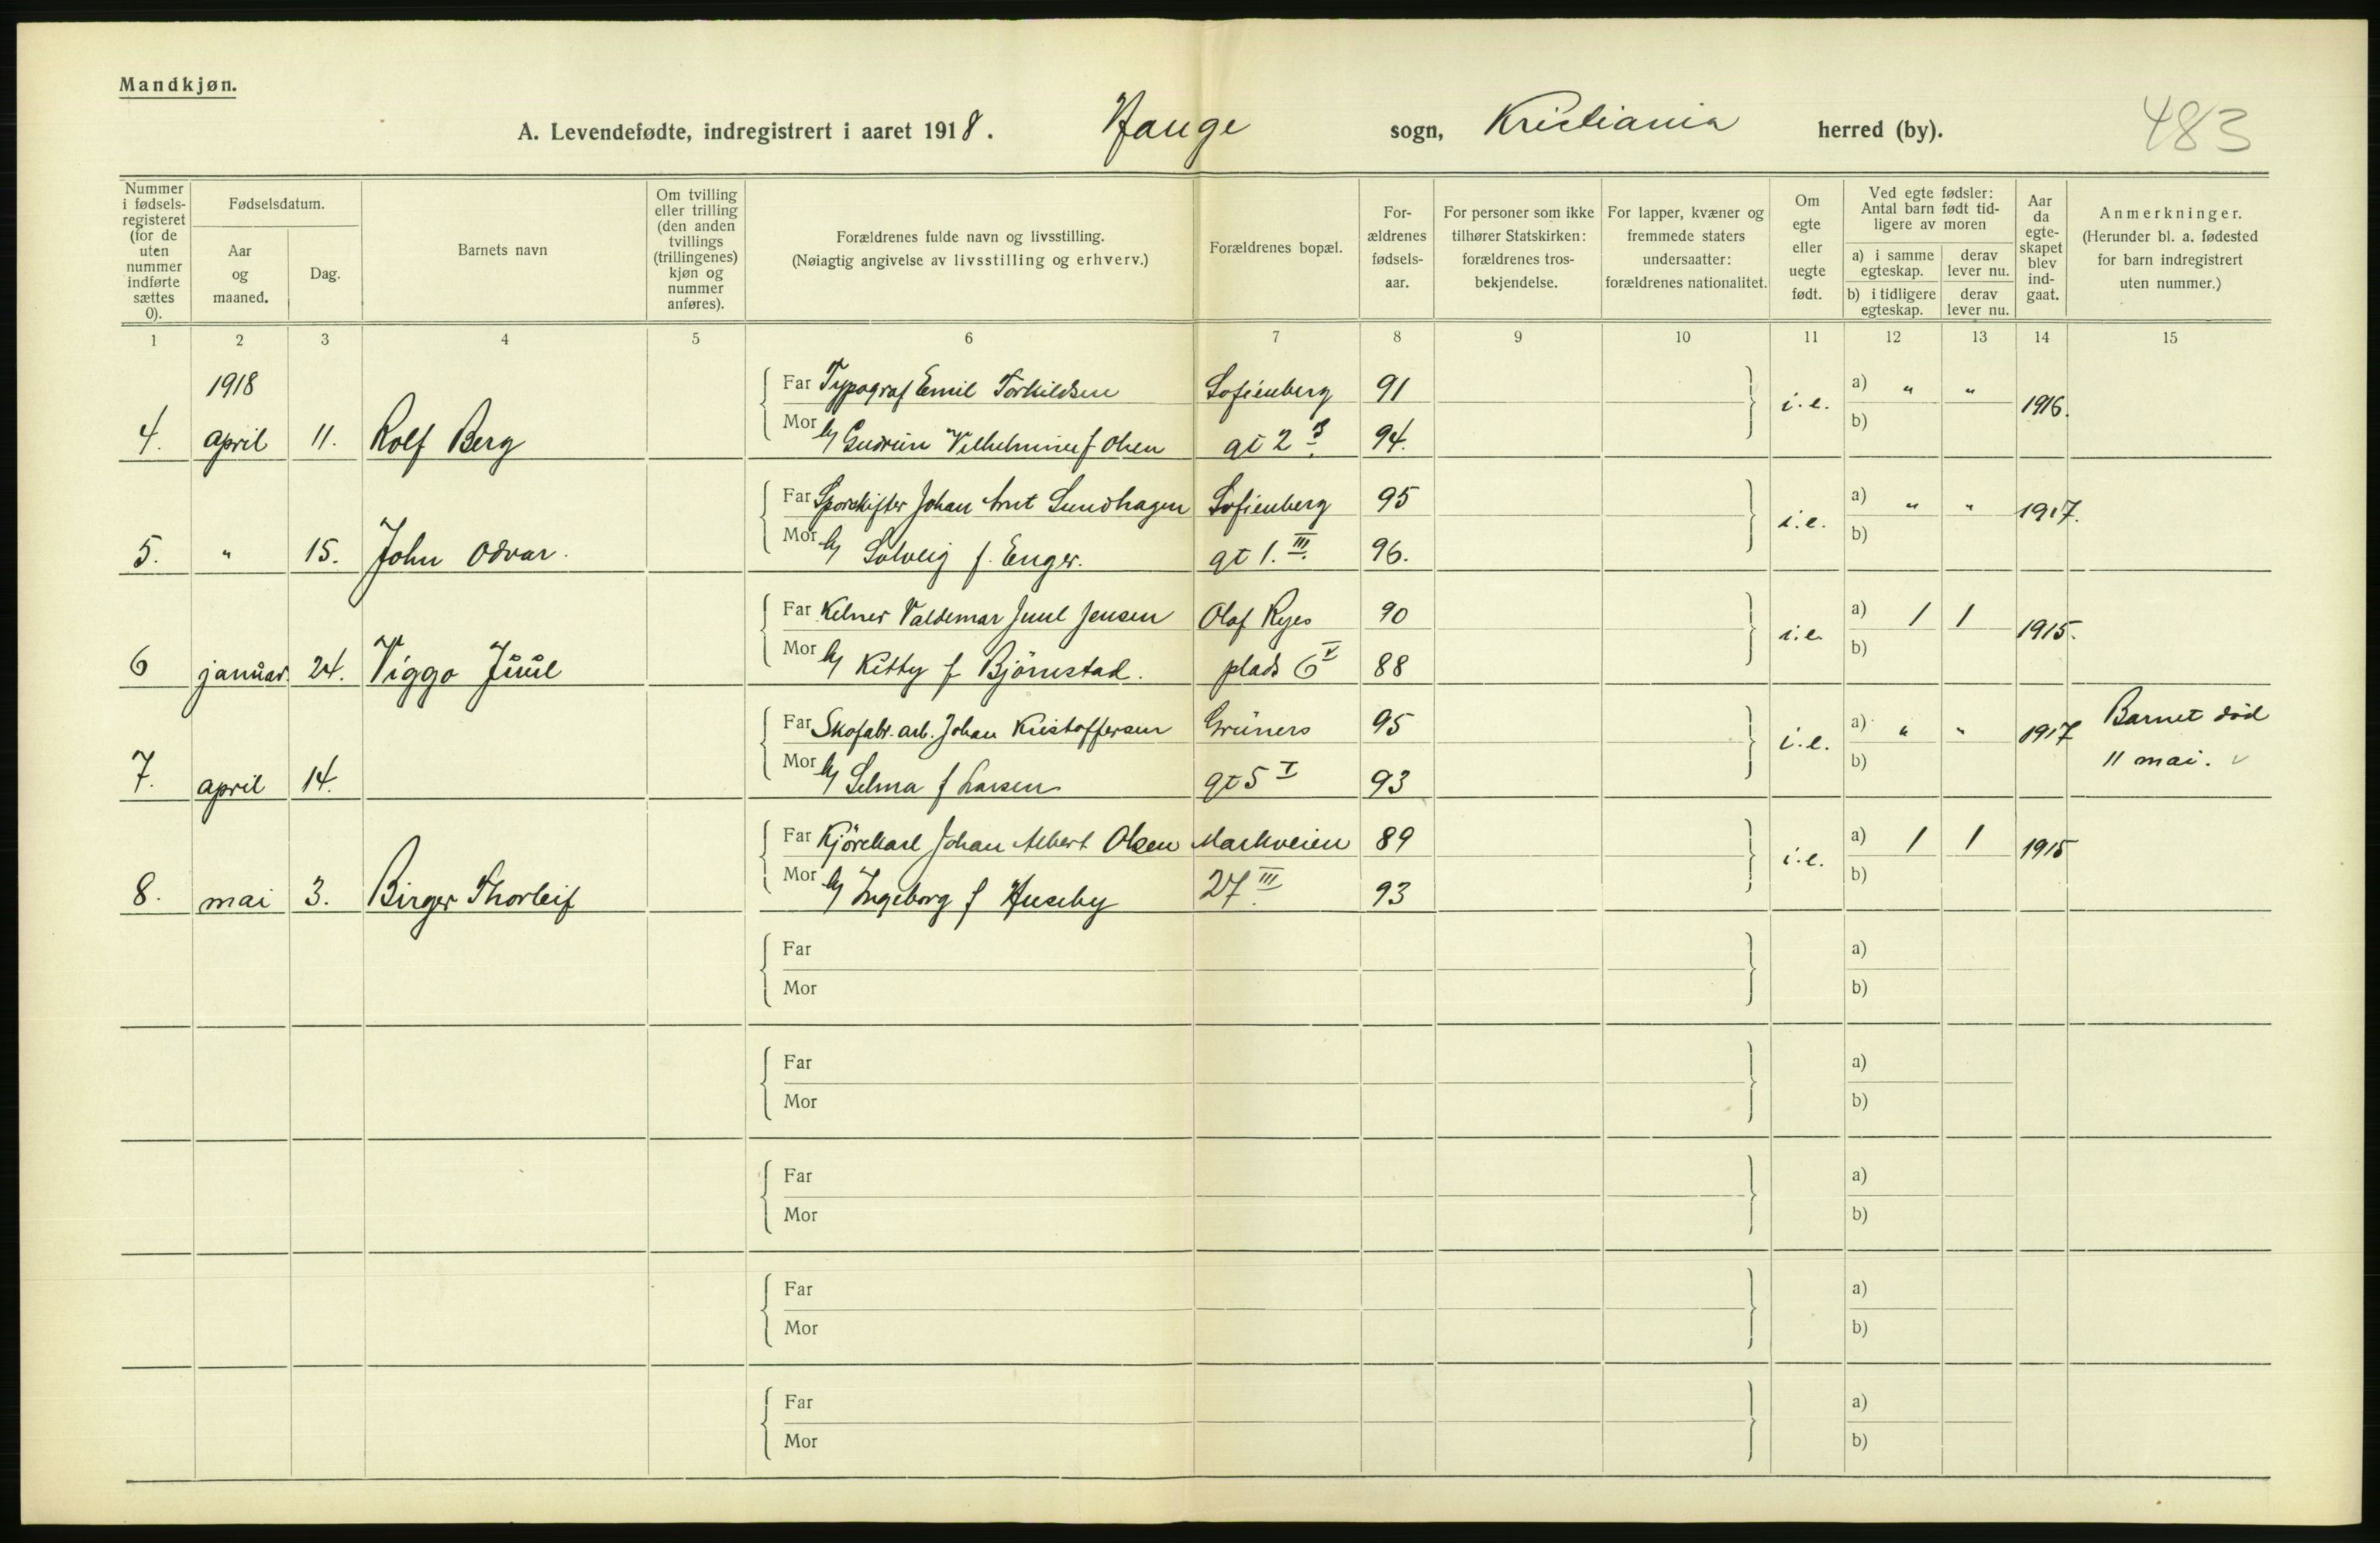 Mandkjøn.
A. Levendefødte, indregistrert i aaret 1918. Hauge sogn, Kristiania herred (by). 483
Nummer i fødsels-registeret (for de uten nummer indførte sættes 0).
Fødselsdatum.
Aar og maaned.
Dag.
Barnets navn
Om tvilling eller trilling (den anden tvillings (trillingenes) kjøn og nummer anføres).
Forældrenes fulde navn og livsstilling.
(Nøiagtig angivelse av livsstilling og erhverv.)
Forældrenes bopæl.
For-ældrenes fødsels-aar.
For personer som ikke tilhører Statskirken: forældrenes tros-bekjendelse.
For lapper, kvæner og fremmede staters undersaatter: forældrenes nationalitet.
Om egte eller uegte født.
Ved egte fødsler: Antal barn født tid-ligere av moren
a) i samme egteskap. derav lever nu.
b) i tidligere egteskap. derav lever nu.
Aar da egte-skapet blev ind-gaat.
Anmerkninger.
(Herunder bl. a. fødested for barn indregistrert uten nummer.)
1 2 3 4 5 6 7 8 9 10 11 12 13 14 15
1918 Far Typograf Emil Torkildsen Sofienberg 91 i.e. a) " " 1916.
4. april 11. Rolf Berg Mor h/ Gudrun Vilhelmine f Olsen gt 2 94. b)
Far Sporskifter Johan Arnt Sundhagen Sofienberg 95 i.e. a) " " 1917.
5. " 15. John Odvar. Mor h/ Solveig f. Enger. gt 1. III. 96. b)
Far Kelner Valdemar Juul Jensen Olaf Ryes 90 i.e. a) 1 1 1915.
6 januar. 24. Viggo Juul Mor h/ Kitty f Bjørnstad. plads 6 V 88 b)
Far Skofabr. arb. Johan Kristoffersen Grüners 95 i.e. a) " " 1917 Barnet död
7. april 14. Mor h/ Selma f Larsen gt 5 I 93 b) 11 mai. v
Far Kjörekarl Johan Albert Olsen Markveien 89 i.e. a) 1 1 1915
8. mai 3. Birger Thorleif Mor h/ Ingeborg f Huseby 27 III. 93 b)
Far a)
Mor b)
Far a)
Mor b)
Far a)
Mor b)
Far a)
Mor b)
Far a)
Mor b)